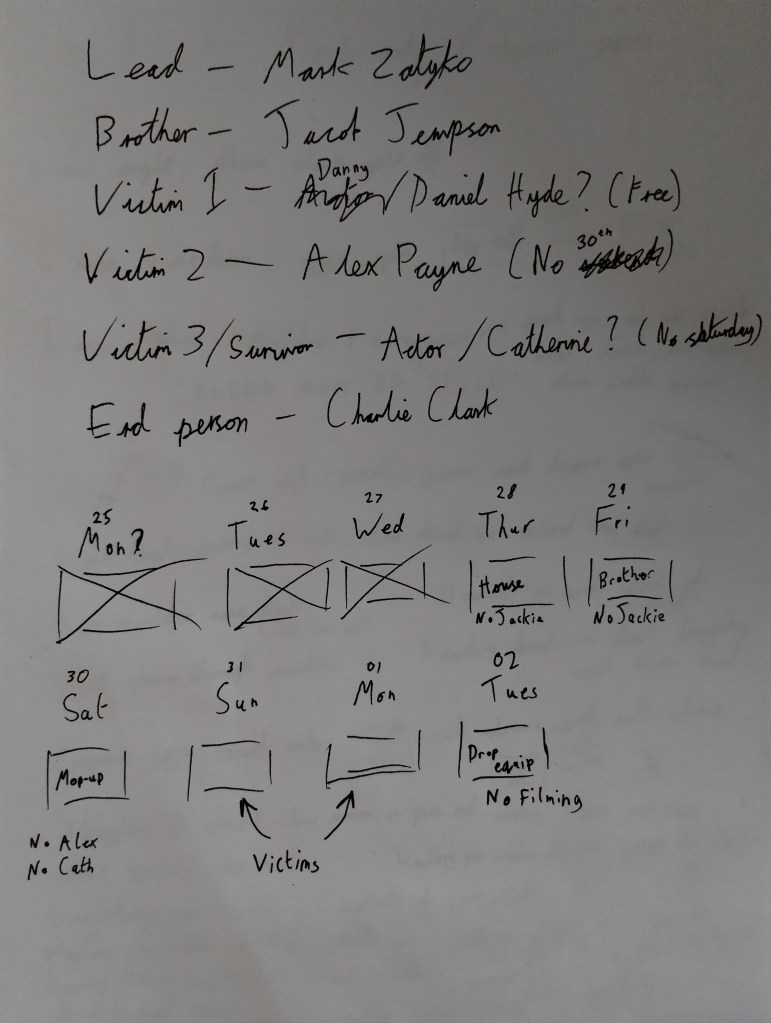 Lead - Mark Zatyko
Brother - Jacob Jempson
Victim 1 - Danny/Daniel Hyde? (Free)
Victim 2 - Alex Payne (No 30th)
Victim 3/Survivor - Actor/Catherine? (No saturday)
End person - Charlie Clark
25 26 27 28 29
Mon? Tues Wed Thur Fri
House Brother
No Jackie No Jackie
30 31 01 02
Sat Sun Mon Tues
Mop-up Drop
equip
No Filming
No Alex
No Cath
Victims